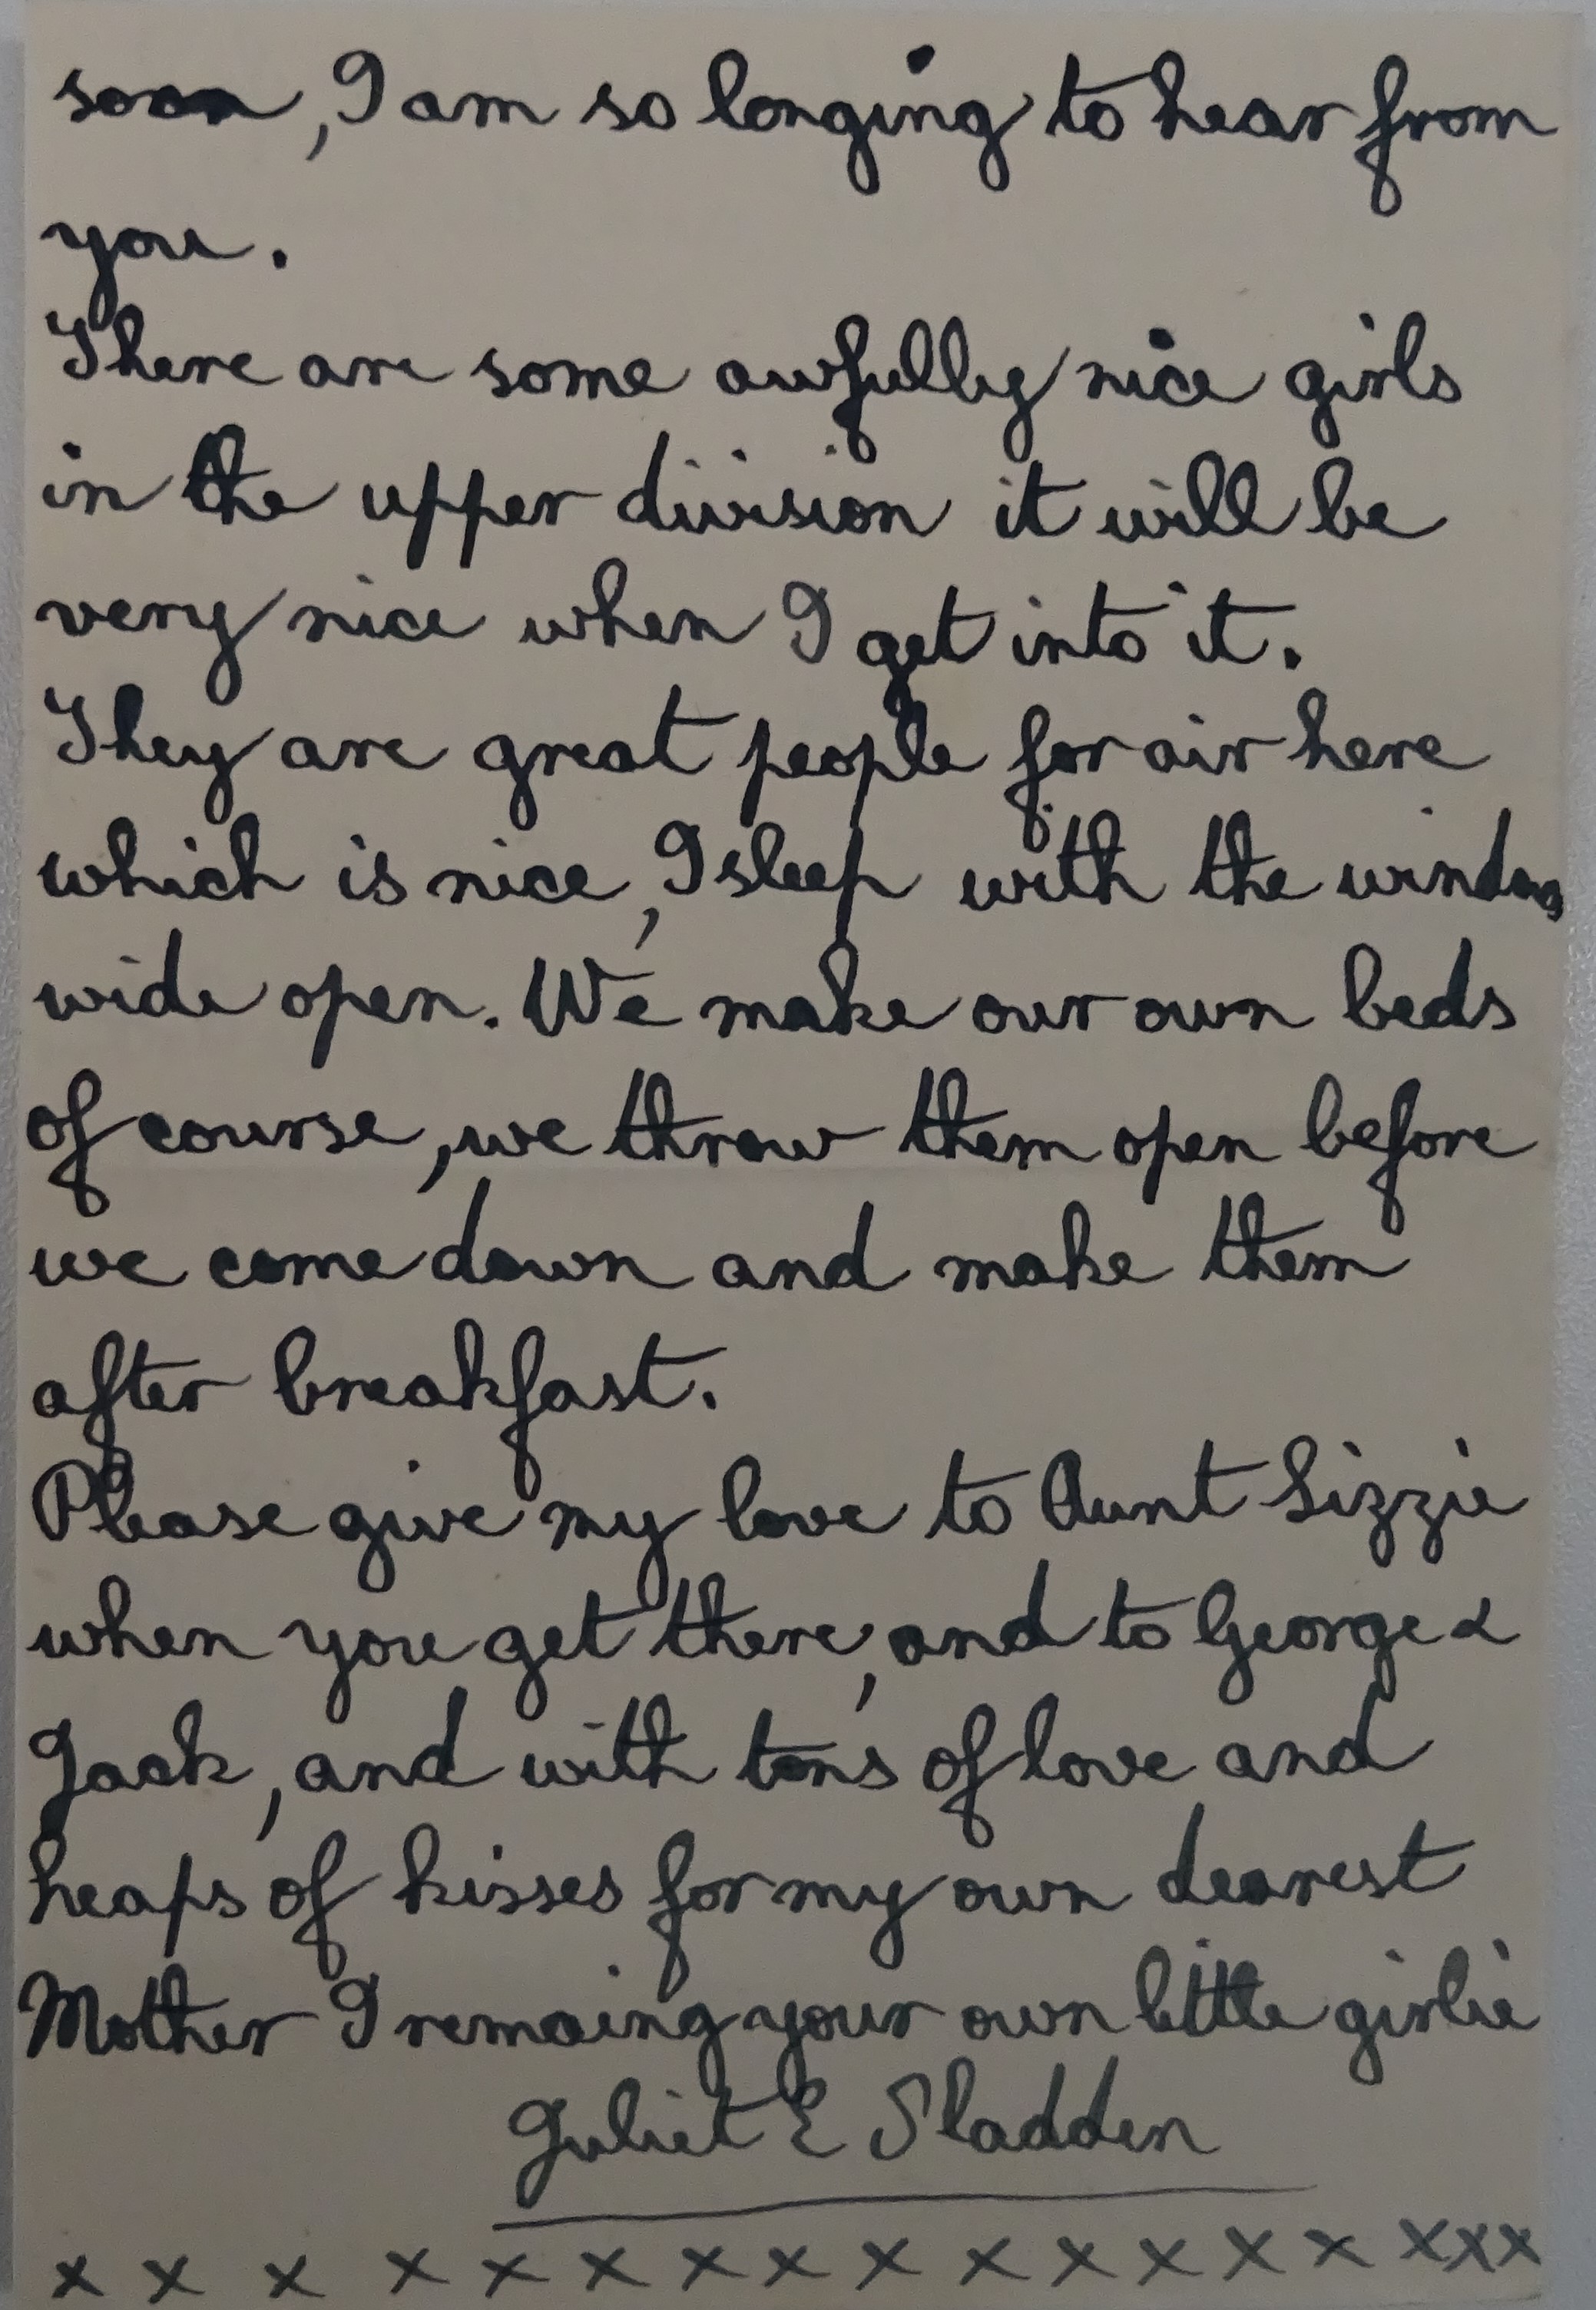 soon, I am so longing to hear from
you.
There are some awfully nice girls
in the upper division it will be
very nice when I get into it.
They are great people for air here
which is nice, I sleep with the window
wide open. We make our own beds
of course, we throw them open before
we come down and make them
after breakfast.
Please give my love to Aunt Lizzie
when you get there, and to George &
Jack, and with tons of love and
heaps of kisses for my own dearest
Mother I remaing your own little girlie
Juliet E Sladden
x x x x x x x x x x x x x x x x